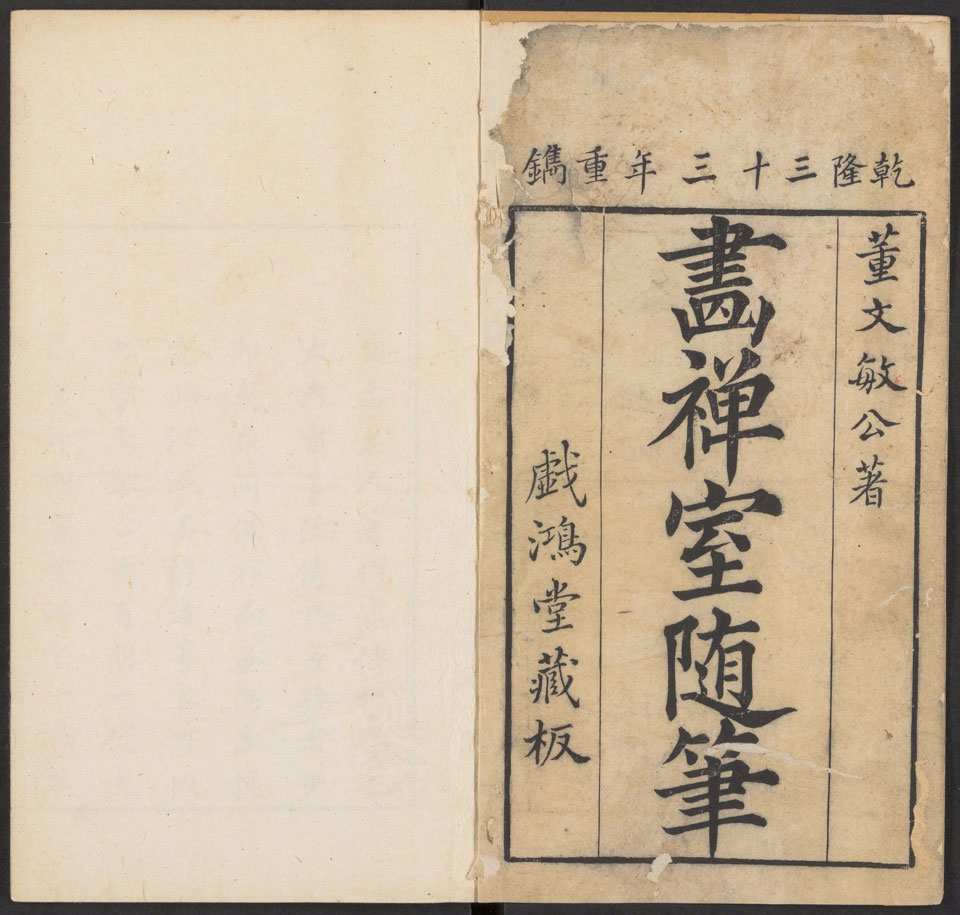 乾隆三十三年重鐫
董文敏公著
畵禅室随筆
戯鴻堂藏板